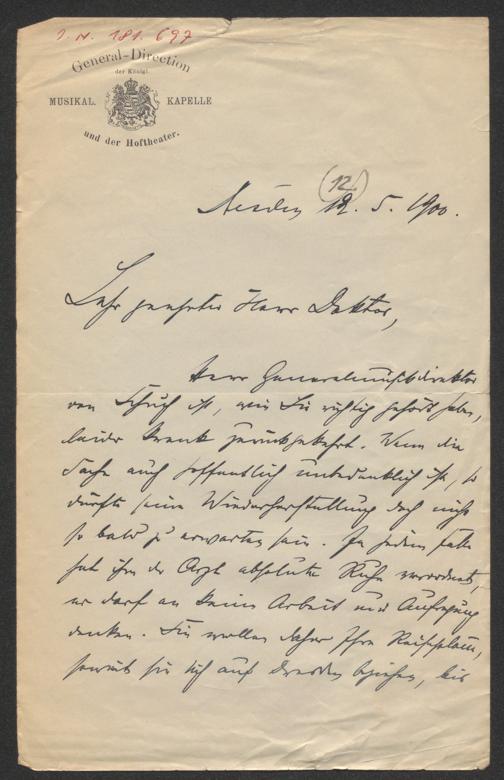 I. N. 181.697
General-Direction
der Königl.
MUSIKAL. KAPELLE
und der Hoftheater.
(12.)
Dresden 12. 5. 1900.
Sehr geehrter Herr Doktor,
Herr Generalmusikdirektor
von Schuch ist, wie Sie richtig gehört haben,
leider krank zurückgekehrt. Wenn die
Sache auch hoffentlich unbedenklich ist, so
dürfte seine Wiederherstellung doch nicht
so bald zu erwarten sein. In jedem Falle
hat ihm der Arzt absolute Ruhe verordnet,
er darf an keine Arbeit und Aufregung
denken. Sie wollen daher Ihre Reisepläne,
soweit sie sich auf Dresden beziehen, bis